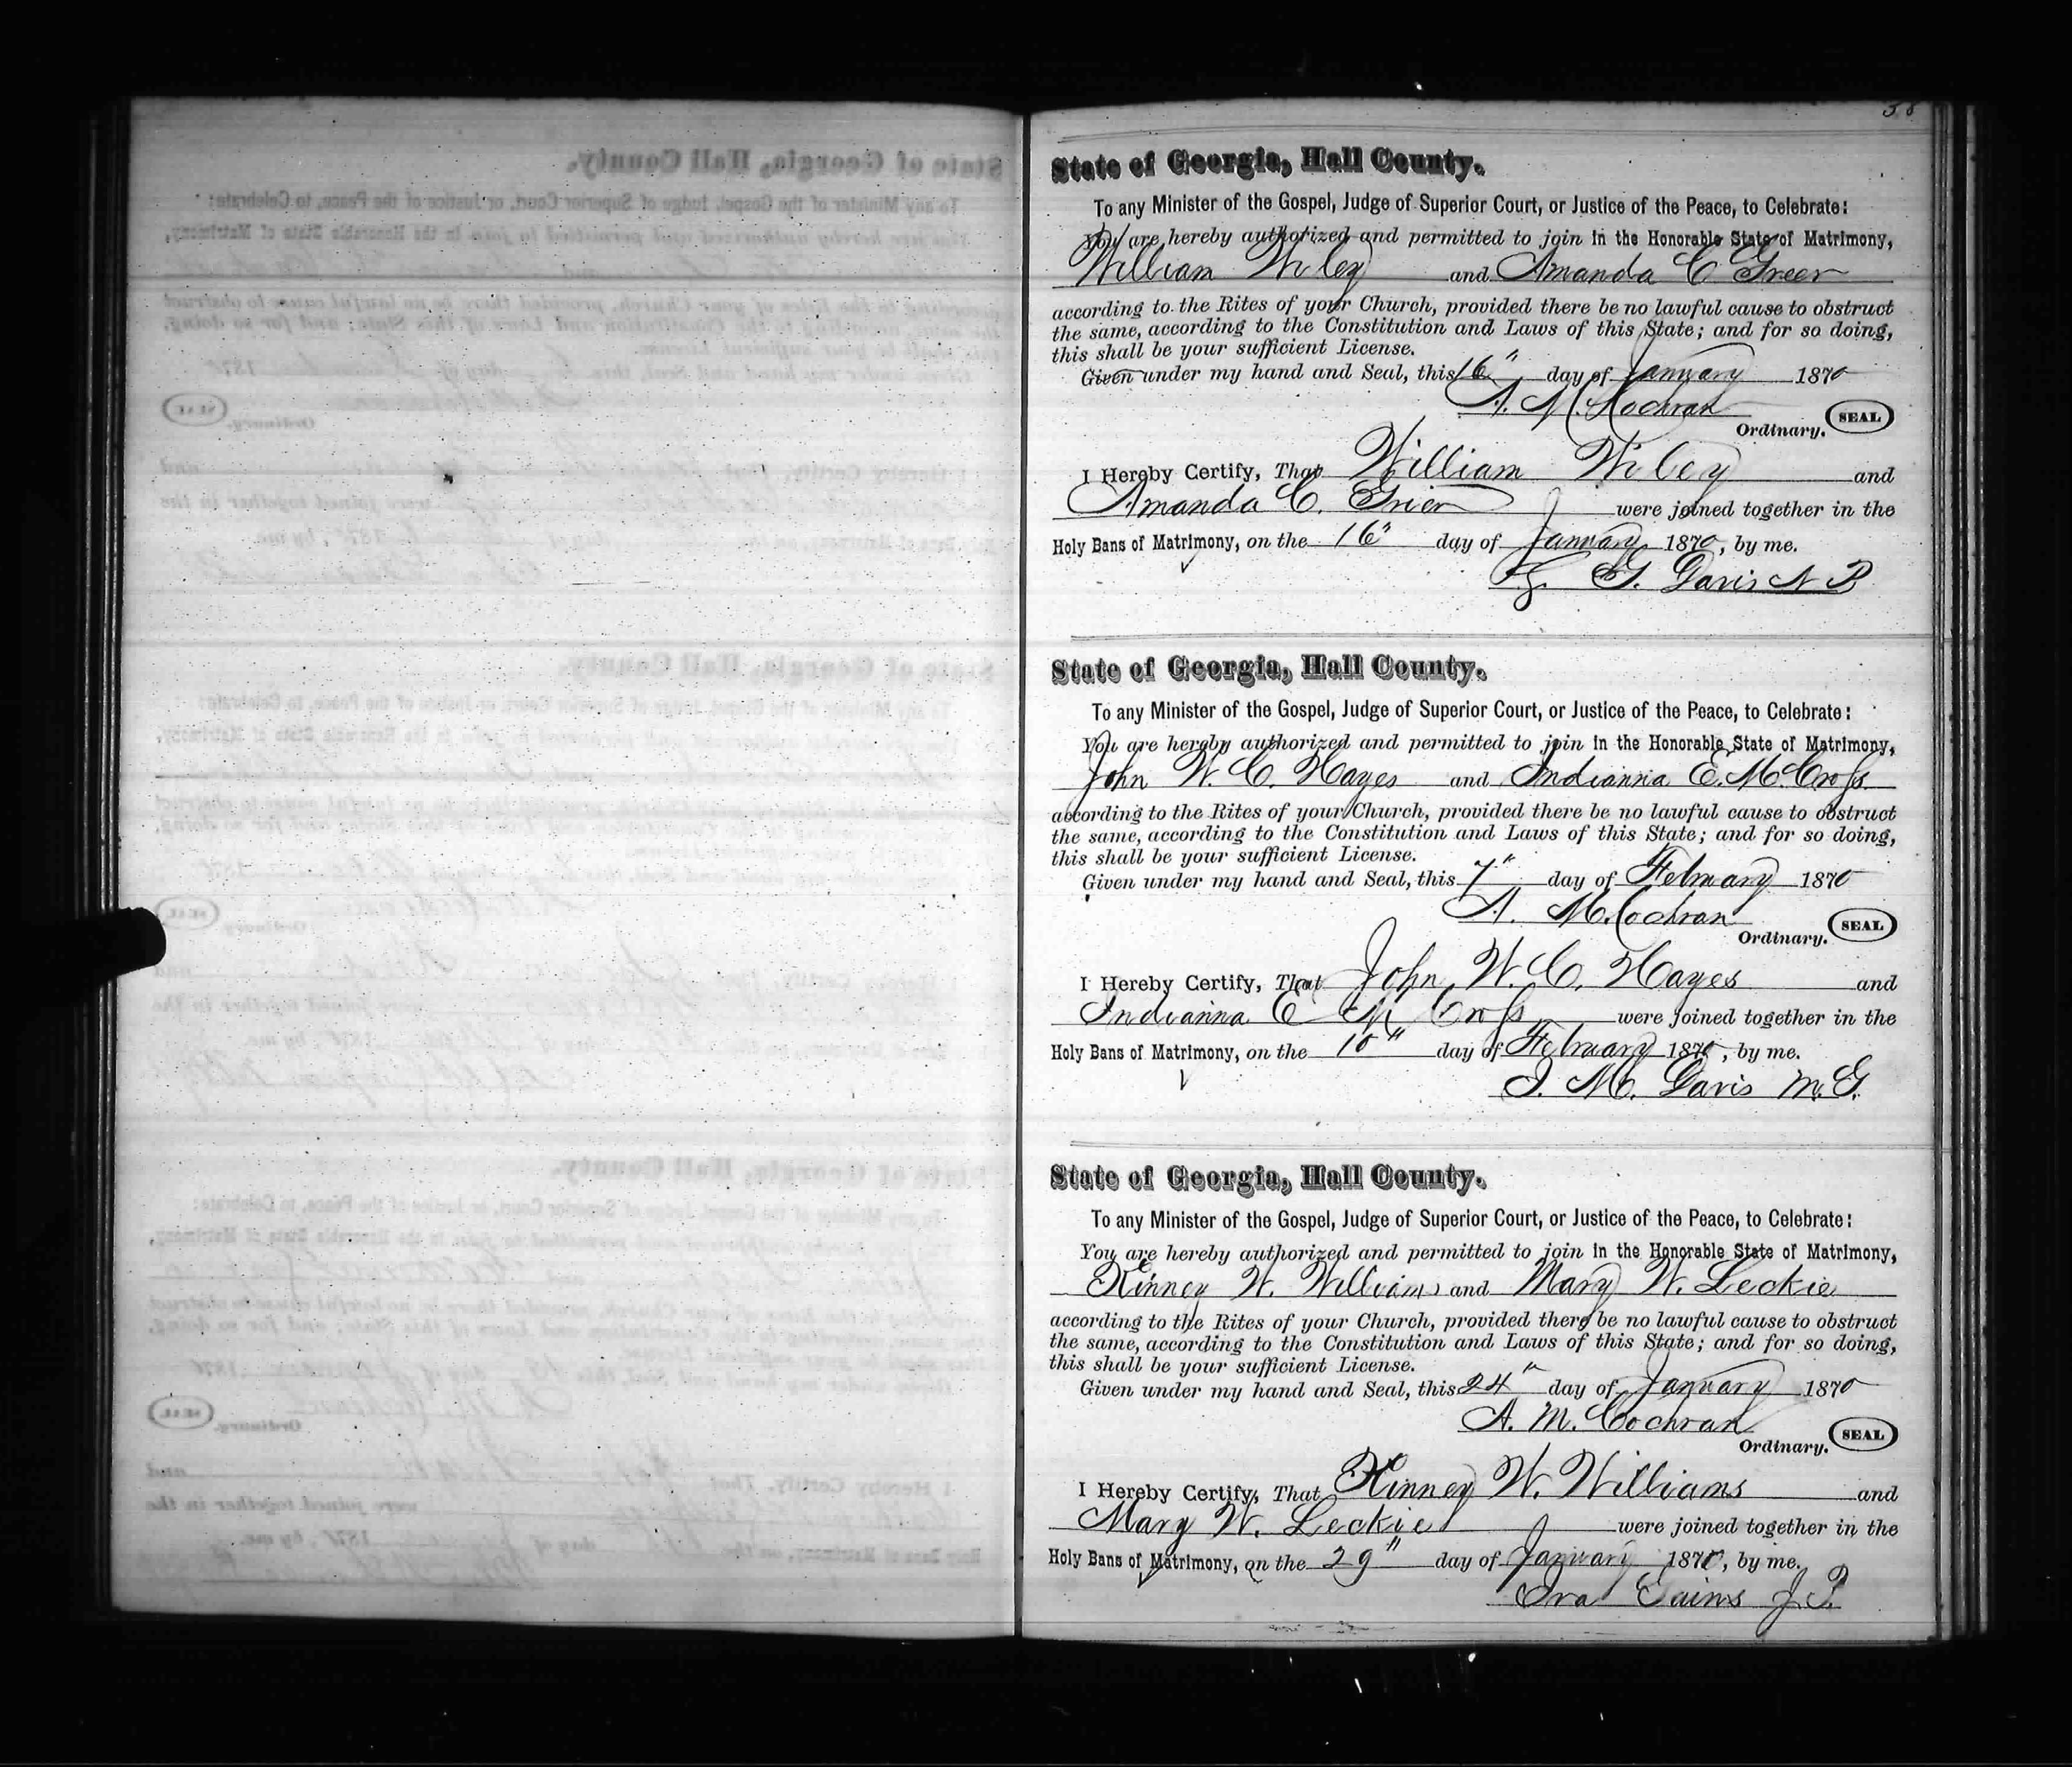 38
State of Georgia, Hall County.
To any Minister of the Gospel, Judge of Superior Court, or Justice of the Peace, to Celebrate:
You are hereby authorized and permitted to join in the Honorable State of Matrimony,
William Wiley and Amanda C Greer
according to the Rites of your Church, provided there be no lawful cause to obstruct
the same, according to the Constitution and Laws of this State; and for so doing,
this shall be your sufficient License.
Given under my hand and Seal, this 16" day of January 1870
A. M. Cochran
Ordinary. SEAL
I Hereby Certify, That William Wiley and
Amanda C. Grier were joined together in the
Holy Bans of Matrimony, on the 16" day of January 1870, by me.
G. Davis N P
State of Georgia, Hall County.
To any Minister of the Gospel, Judge of Superior Court, or Justice of the Peace, to Celebrate:
You are hereby authorized and permitted to join in the Honorable State of Matrimony,
John W. C. Hayes and Indianna E. McCross
according to the Rites of your Church, provided there be no lawful cause to obstruct
the same, according to the Constitution and Laws of this State; and for so doing,
this shall be your sufficient License.
Given under my hand and Seal, this 7" day of February 1870
A. M. Cochran
Ordinary. SEAL
I Hereby Certify, That John W. C. Hayes and
Indianna E McCross were joined together in the
Holy Bans of Matrimony, on the 10" day of February 1870, by me.
J. M. Davis M. G.
State of Georgia, Hall County.
To any Minister of the Gospel, Judge of Superior Court, or Justice of the Peace, to Celebrate:
You are hereby authorized and permitted to join in the Honorable State of Matrimony,
Kinney W. Williams and Mary W. Leckie
according to the Rites of your Church, provided there be no lawful cause to obstruct
the same, according to the Constitution and Laws of this State; and for so doing,
this shall be your sufficient License.
Given under my hand and Seal, this 24" day of January 1870
A. M. Cochran
Ordinary. SEAL
I Hereby Certify, That Kinney W. Williams and
Mary W. Leckie were joined together in the
Holy Bans of Matrimony, on the 29" day of January 1870, by me.
Ira Gains J. P.